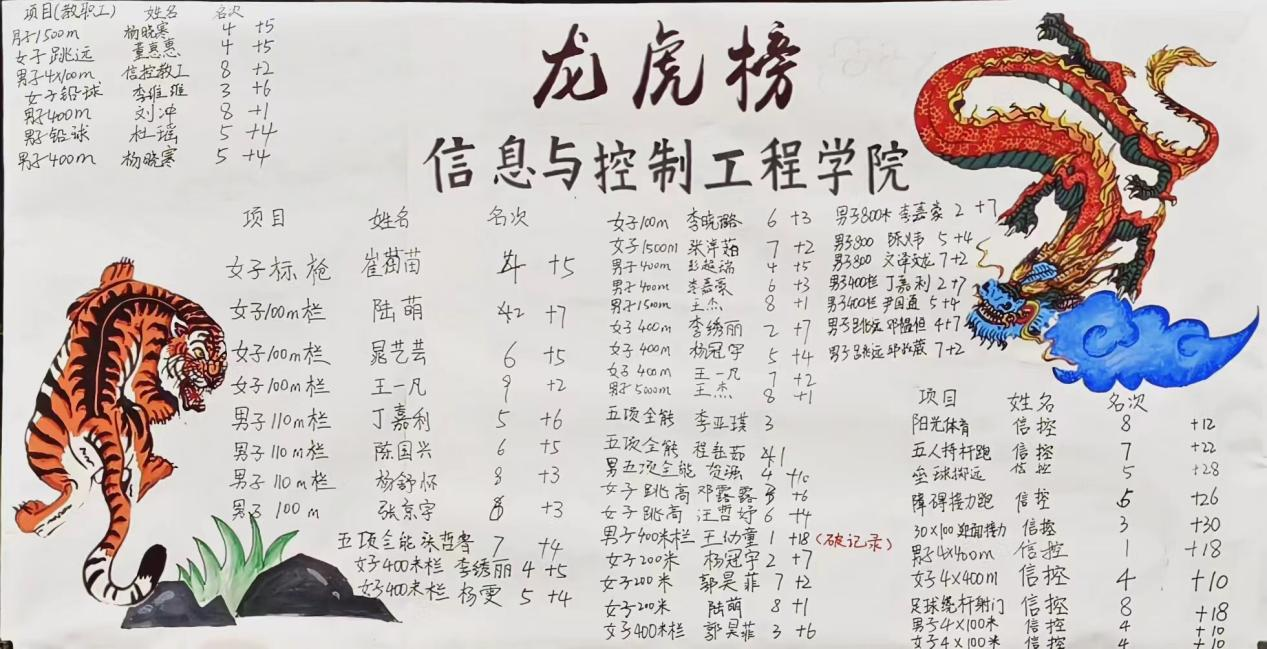 龙虎榜
信息与控制工程学院
项目(教职工) 姓名 名次
男子1500m 杨晓寒 4 +5
女子跳远 董惠惠 4 +5
男子4×100m 信控教工 8 +2
女子铅球 李维维 3 +6
男子400m 刘冲 8 +1
男子铅球 杜瑶 5 +4
男子400m 杨晓寒 5 +4
项目 姓名 名次
女子标枪 崔苗苗 4 +5
女子100m栏 陆萌 2 +7
女子100m栏 晁艺芸 6 +5
女子100m栏 王一凡 9 +2
男子110m栏 丁嘉利 5 +6
男子110m栏 陈国兴 6 +5
男子110m栏 杨舒怀 8 +3
男子100m 张京宇 8 +3
五项全能 张哲 7 +4
女子400米栏 李绣丽 4 +5
女子400米栏 杨雯 5 +4
女子100m 李晓璐 6 +3
女子1500m 张洋茹 7 +2
男子400m 彭超瑞 4 +5
男子400m 李嘉豪 6 +3
男子1500m 王杰 8 +1
女子400m 李绣丽 2 +7
女子400m 杨冠宇 5 +4
女子400m 王一凡 7 +2
男子5000m 王杰 8 +1
五项全能 李亚璞 3
五项全能 程茹 4
男五项全能 贺源 4 +10
女子跳高 邓露露 +6
女子跳高 汪哲妤 6 +4
男子400米栏 王仂童 1 +18 (破记录)
女子200米 杨冠宇 2 +7
女子200米 郭昊菲 7 +2
女子200米 陆萌 8 +1
女子400米栏 郭昊菲 3 +6
男子800米 李嘉豪 2 +7
男子800 陈炜 5 +4
男子800 文泽文龙 7 +2
男子400栏 丁嘉利 2 +7
男子400栏 尹国通 5 +4
男子跳远 邓韫恒 4 +7
男子跳远 邱 7 +2
项目 姓名 名次
阳光体育 信控 8 +12
五人持杆跑 信控 7 +22
垒球掷远 信控 5 +28
障碍接力跑 信控 5 +26
30×100迎面接力 信控 3 +30
男子4×400m 信控 1 +18
女子4×400m 信控 4 +10
足球绕杆射门 信控 8 +18
男子4×100米 信控 4 +10
女子4×100米 信控 4 +10